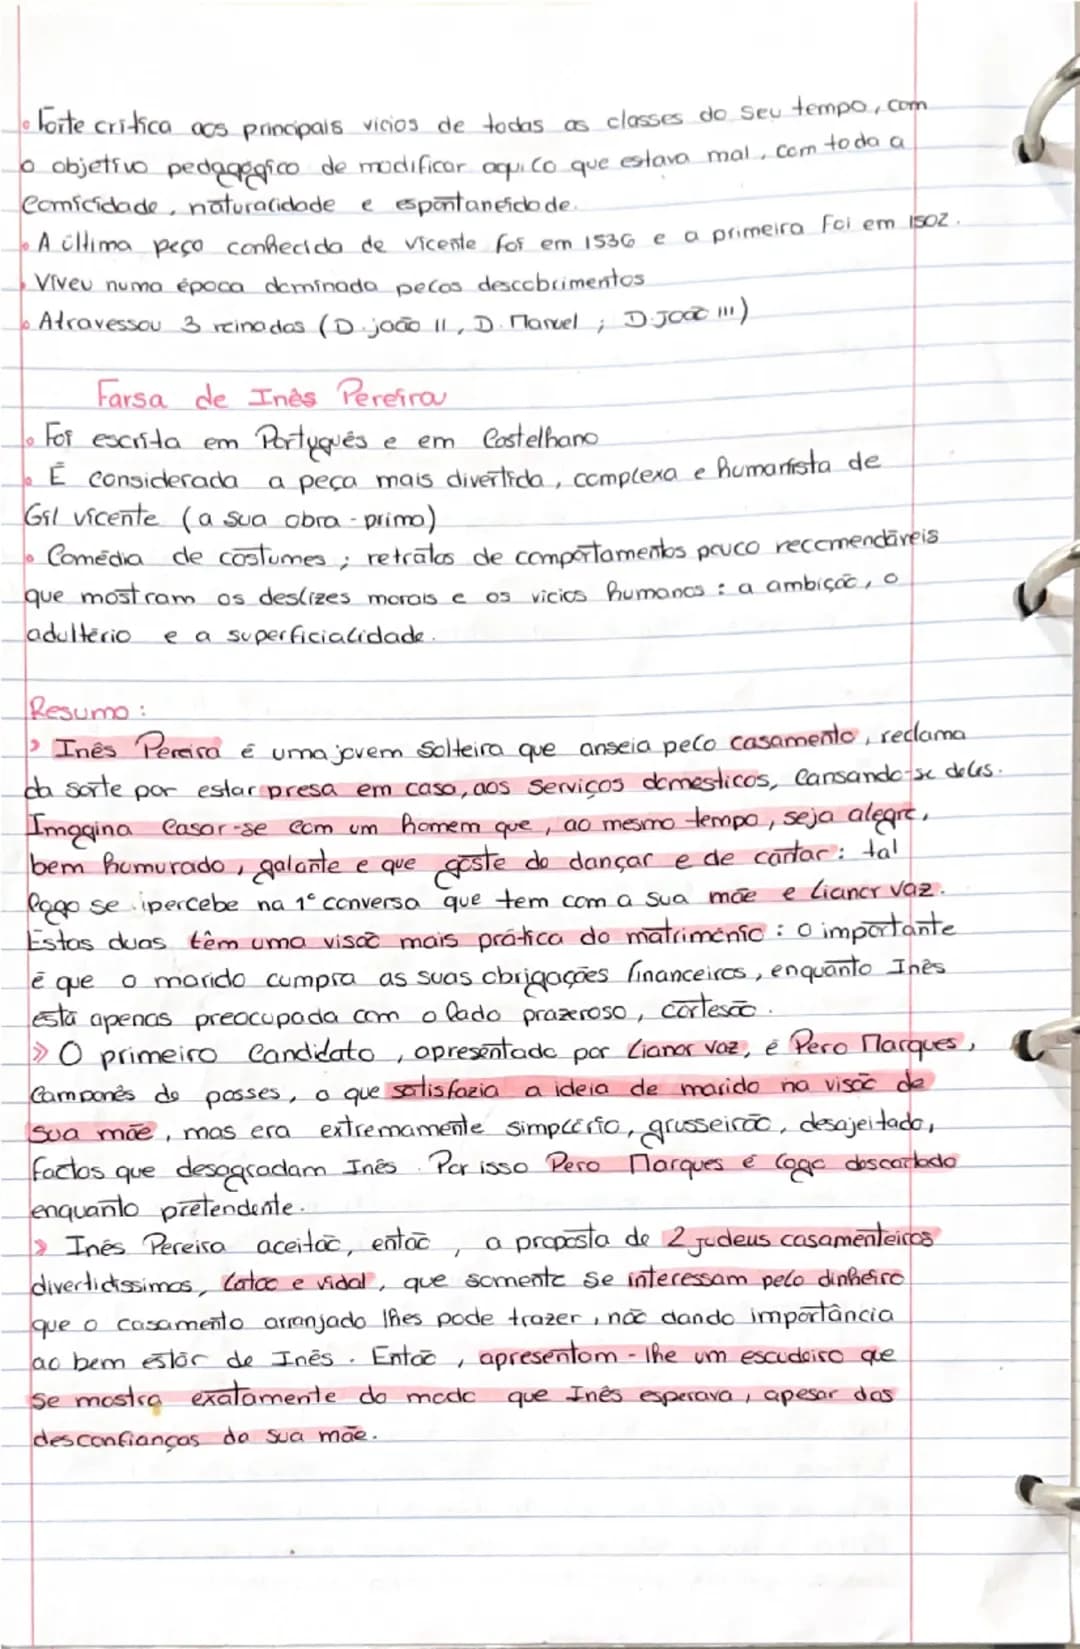 • Forte critica aos principais vicios de todas as classes do seu tempo, com
o objetivo pedagógico de modificar aquilo que estava mal, com toda a
Comicidade, naturalidade e espontaneidade.
• A última peça conhecida de Vicente foi em 1536 e a primeira foi em 1502.
• Viveu numa época dominada pelos descobrimentos
• Atravessou 3 reinados (D. joão II, D. Manuel ; D. João III)
Farsa de Inês Pereira
• Foi escrita em Português e em Castelhano
• É considerada a peça mais divertida, complexa e humanista de
Gil vicente (a sua obra-prima)
• Comédia de costumes ; retratos de comportamentos pouco recomendáveis
que mostram os deslizes morais e os vicios humanos : a ambição, o
adultério e a superficialidade.
Resumo :
› Inês Pereira é uma jovem solteira que anseia pelo casamento, reclama
da sorte por estar presa em casa, aos serviços domesticos, cansando-se deles.
Imagina casar-se com um homem que, ao mesmo tempo, seja alegre,
bem humurado, galante e que goste de dançar e de cantar : tal
logo se ipercebe na 1º conversa que tem com a sua mãe e Lianor vaz.
Estas duas têm uma visão mais prática do matrimónio : o importante
é que o marido cumpra as suas obrigações financeiras, enquanto Inês
está apenas preocupada com o lado prazeroso, cortesão.
» O primeiro candidato, apresentado por Lianor vaz, é Pero Marques,
Camponês de posses, o que satisfazia a ideia de marido na visão de
sua mãe, mas era extremamente simplório, grusseirão, desajeitado,
factos que desagradam Inês. Por isso Pero Marques é logo descartado
enquanto pretendente.
» Inês Pereira aceitao, então, a proposta de 2 judeus casamenteiros
divertidissimos, Latao e vidal, que somente se interessam pelo dinheiro
que o casamento arranjado lhes pode trazer, não dando importância
ao bem estar de Inês. Então, apresentam-lhe um escudeiro que
se mostra exatamente do modo que Inês esperava, apesar das
desconfianças da sua mãe.